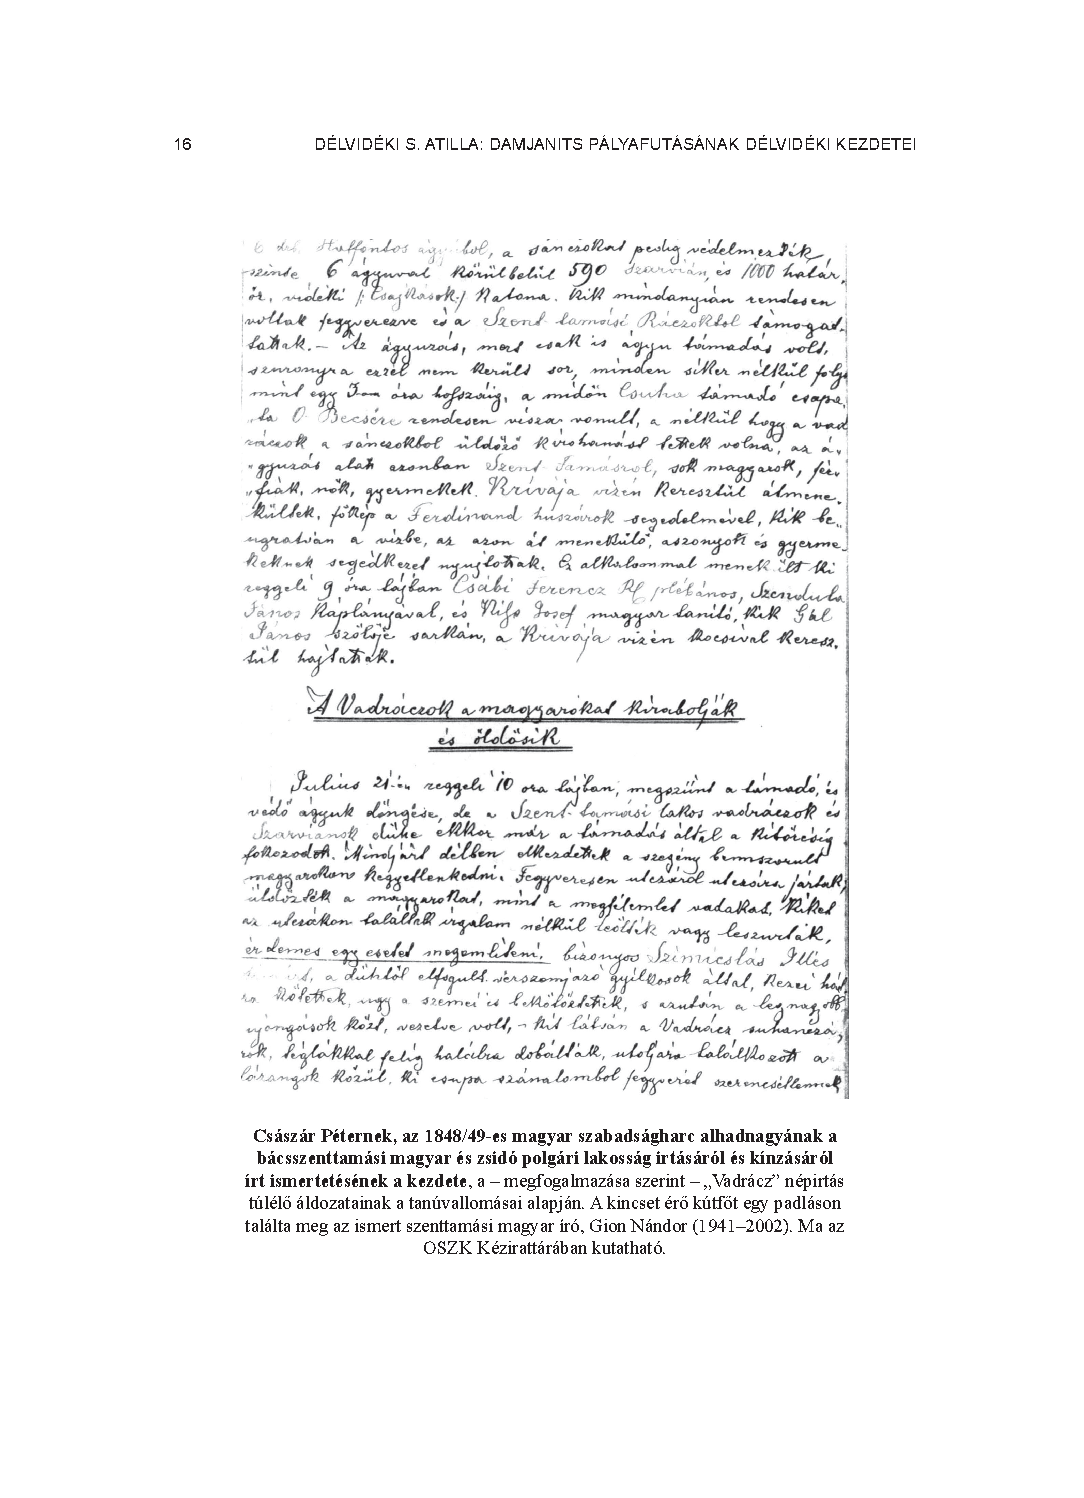 16 DÉLVIDÉKI S. ATILLA: DAMJANITS PÁLYAFUTÁSÁNAK DÉLVIDÉKI KEZDETEI
6 ágyuból, a sánczokat pedig védelmezték,
szinte 6 ágyuval körülbelül 590 Szarvián, és 1000 határ,
ör, vidéki /:Csajkások:/ Katona. Kik mindanyián rendesen
voltak fegyverezve és a Szent-tamási Ráczoktol támogat,
tattak. – Az ágyuzás, mert csak is ágyu támadás volt,
szuronyra ezzel nem került sor, minden siker nélkül foly
mint egy óra hoszáig, a midőn Csuha támadó csapa,
ta O Becsére rendesen vissza vonult, a nélkül hogy a vad
ráczok a sánczokbol üldöző kirohanást tettek volna, az á,
gyuzás alatt azonban Szent Tamásrol, sok magyarok, fér,
fiak, nők, gyermekek. Krivája vizén keresztül átmene,
kültek, főkép a Ferdinand huszárok segedelmével, kik be,
ugratván a vizbe, az azon át menekülő, aszonyok és gyerme,
keknek segédkezet nyujtottak. Ez alkalommal menekült ki
reggeli 9 óra tájban Csábi Ferencz plébános, Szendula
János Káplányával, és József magyar tanitó, kik Gál
János szőlője sarkán, a Krivája vizén kocsival keresz,
tül hajtattak.
A Vadráczok a magyarokat kirabolják
és öldösik
Julius 21-én reggeli 10 ora tájban, megszünt a támadó, és
védő ágyuk döngése, de a Szent-tamási lakos vadráczok és
Szarviánok dühe ekkor már a támadás által a kitörésig
fokozodott. Mindjárt délben elkezdettek a szegény bennszorult
magyarokon kegyetlenkedni. Fegyveresen utczáról utczára jártak,
üldözték a magyarokat, mint a megfélemlet vadakat. Kiket
az utczákon találtak irgalom nélkül leölték vagy leszurták,
érdemes egy esetet megemliteni, bizonyos Szimicslás Illés
a dühtől elfogult vérszomjazó gyilkosok által, kezei hát,
ra kötettek, ugy a szemei is bekötöztettek, s azután a legnagyobb
ujongások közt, vezetve volt, – kit látván a Vadrácz suhanczá,
rok, téglákkal felig halálra dobálták, utoljára találkozott a
közül, ki csupa szánalombol fegyverét szerencsétlennek
Császár Péternek, az 1848/49-es magyar szabadságharc alhadnagyának a
bácsszenttamási magyar és zsidó polgári lakosság irtásáról és kínzásáról
írt ismertetésének a kezdete, a – megfogalmazása szerint – „Vadrácz” népirtás
túlélő áldozatainak a tanúvallomásai alapján. A kincset érő kútfőt egy padláson
találta meg az ismert szenttamási magyar író, Gion Nándor (1941–2002). Ma az
OSZK Kézirattárában kutatható.